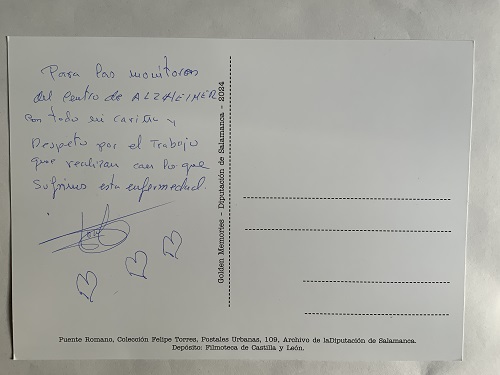 Para las monitoras
del Centro de ALZHEIMER
con todo mi cariño y
Respeto por el Trabajo
que realizan con los que
Sufrimos esta enfermedad.
Golden Memories - Diputación de Salamanca - 2024
Puente Romano, Colección Felipe Torres, Postales Urbanas, 109, Archivo de laDiputación de Salamanca.
Depósito: Filmoteca de Castilla y León.